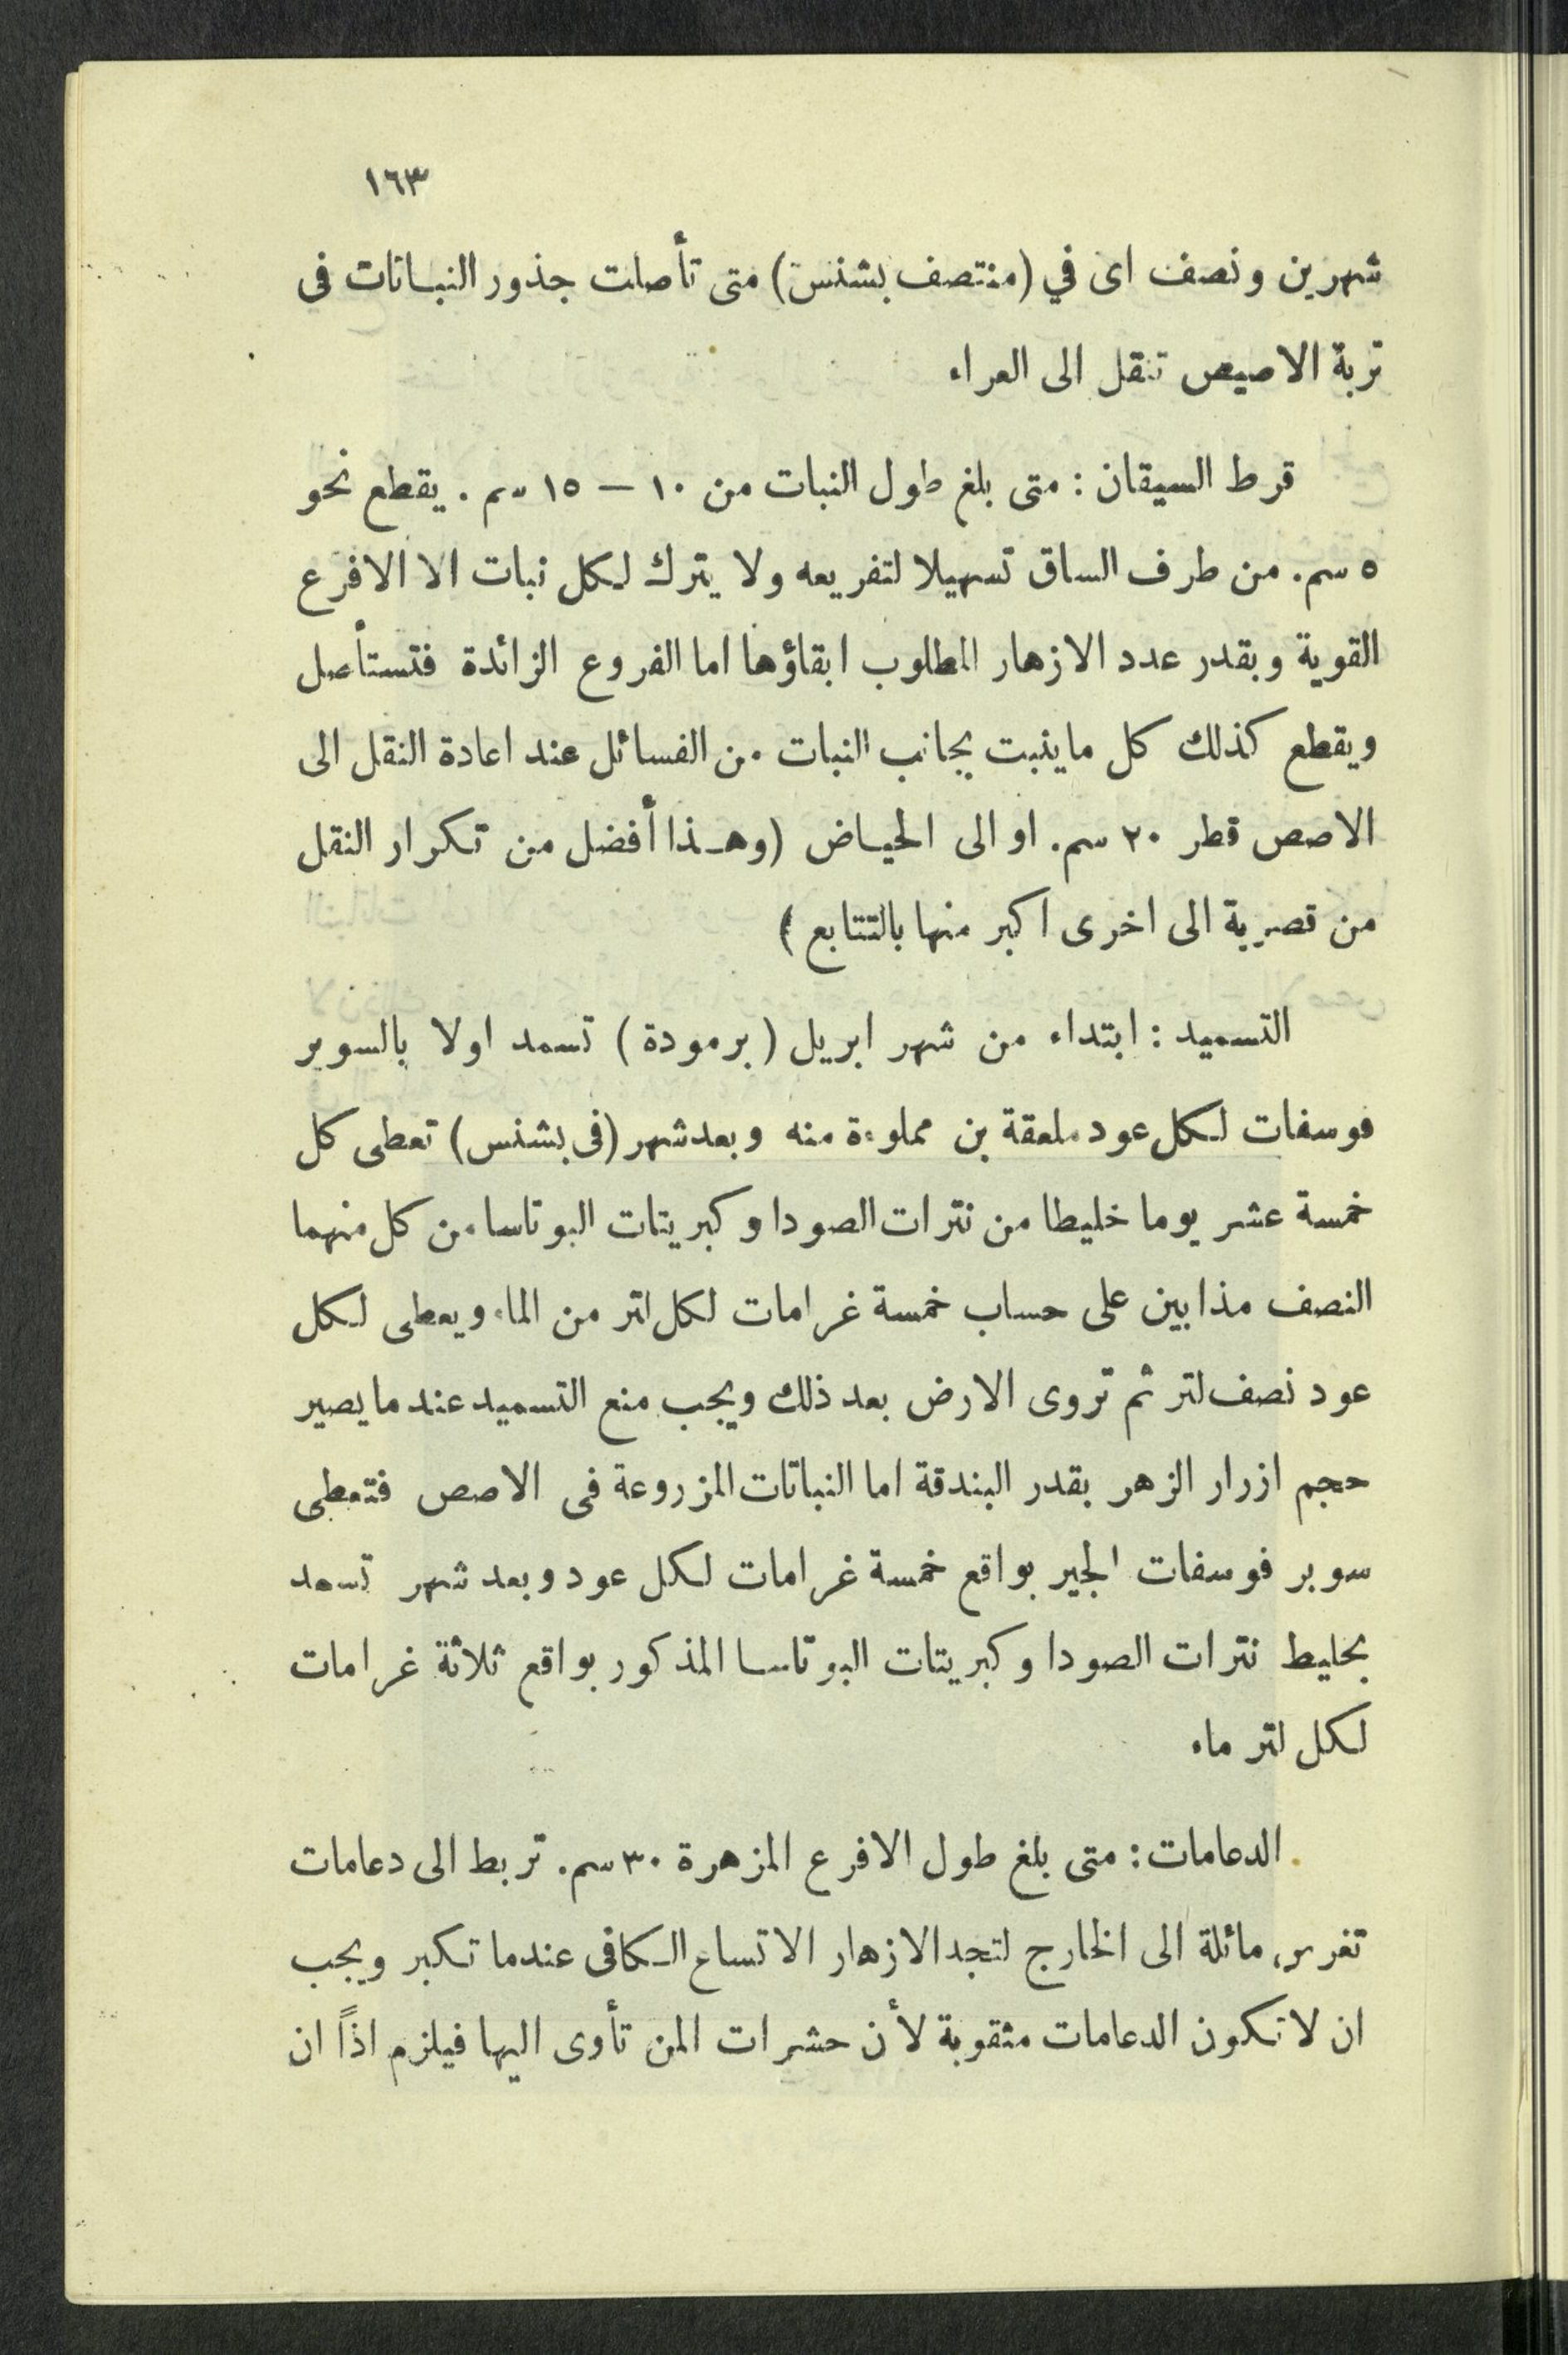 ١٦٣
شهرين ونصف اى في (منتصف بشنس) متى تأصلت جذور النباتات فى
تربة الاصيص تنقل الى العراء
قرط السيقان : متى بلغ طول النبات من ١٠ — ١٥ سم . يقطع نحو
٥ سم. من طرف الساق تسهيلا لتفريعه ولا يترك لكل نبات الا الافرع
القوية وبقدر عدد الازهار المطلوب ابقاؤها اما الفروع الزائدة فتستأصل
ويقطع كذلك كل ماينبت بجانب النبات من الفسائل عند اعادة النقل الى
الاصص قطر ٢٠ سم. او الى الحياض (وهذا أفضل من تكرار النقل
من قصرية الى اخرى اكبر منها بالتتابع )
التسميد : ابتداء من شهر ابريل (برمودة ) تسمد اولا بالسوبر
فوسفات لكل عود ملعقة بن مملوءة منه وبعد شهر (فى بشنس) تعطى كل
خمسة عشر يوما خليطا من نترات الصودا وكبريتات البوتاسا من كل منهما
النصف مذابين على حساب خمسة غرامات لكل لتر من الماء ويعطى لكل
عود نصف لتر ثم تروى الارض بعد ذلك ويجب منع التسميد عند ما يصير
حجم ازرار الزهر بقدر البندقة اما النباتات المزروعة فى الاصص فتعطى
سوبر فوسفات الجير بواقع خمسة غرامات لكل عود وبعد شهر تسمد
بخليط نترات الصودا وكبريتات البوتاسا المذكور بواقع ثلاثة غرامات
لكل لتر ماء
الدعامات : متى بلغ طول الافرع المزهرة ٣٠ سم. تربط الى دعامات
تغرس مائلة الى الخارج لتجد الازهار الاتساع الكافى عندما تكبر ويجب
ان لا تكون الدعامات مثقوبة لأن حشرات المن تأوى اليها فيلزم اذاً ان